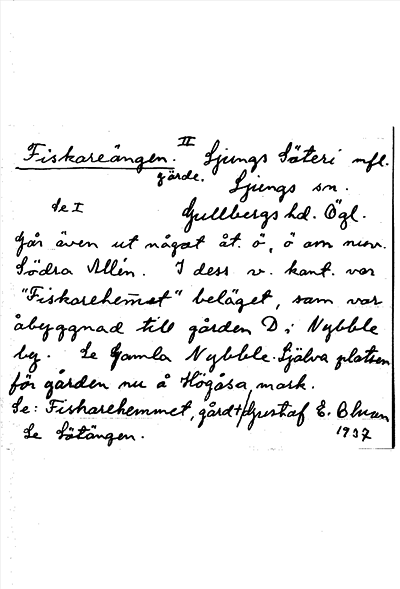 Fiskareängen. II Ljungs Säteri mfl.
gärde. Ljungs sn.
Se I Gullbergs hd. Ögl.
Går även ut något åt ö, ö om nuv.
Södra Allén. I dess v. kant. var
"Fiskarehemmet" beläget, som var
åbyggnad till gården D i Nybble
by. Se Gamla Nybble. Själva platsen
för gården nu å Högåsa mark.
Se: Fiskarehemmet, gård+/Gustaf E. Bluan
Se Sätängen. 1937